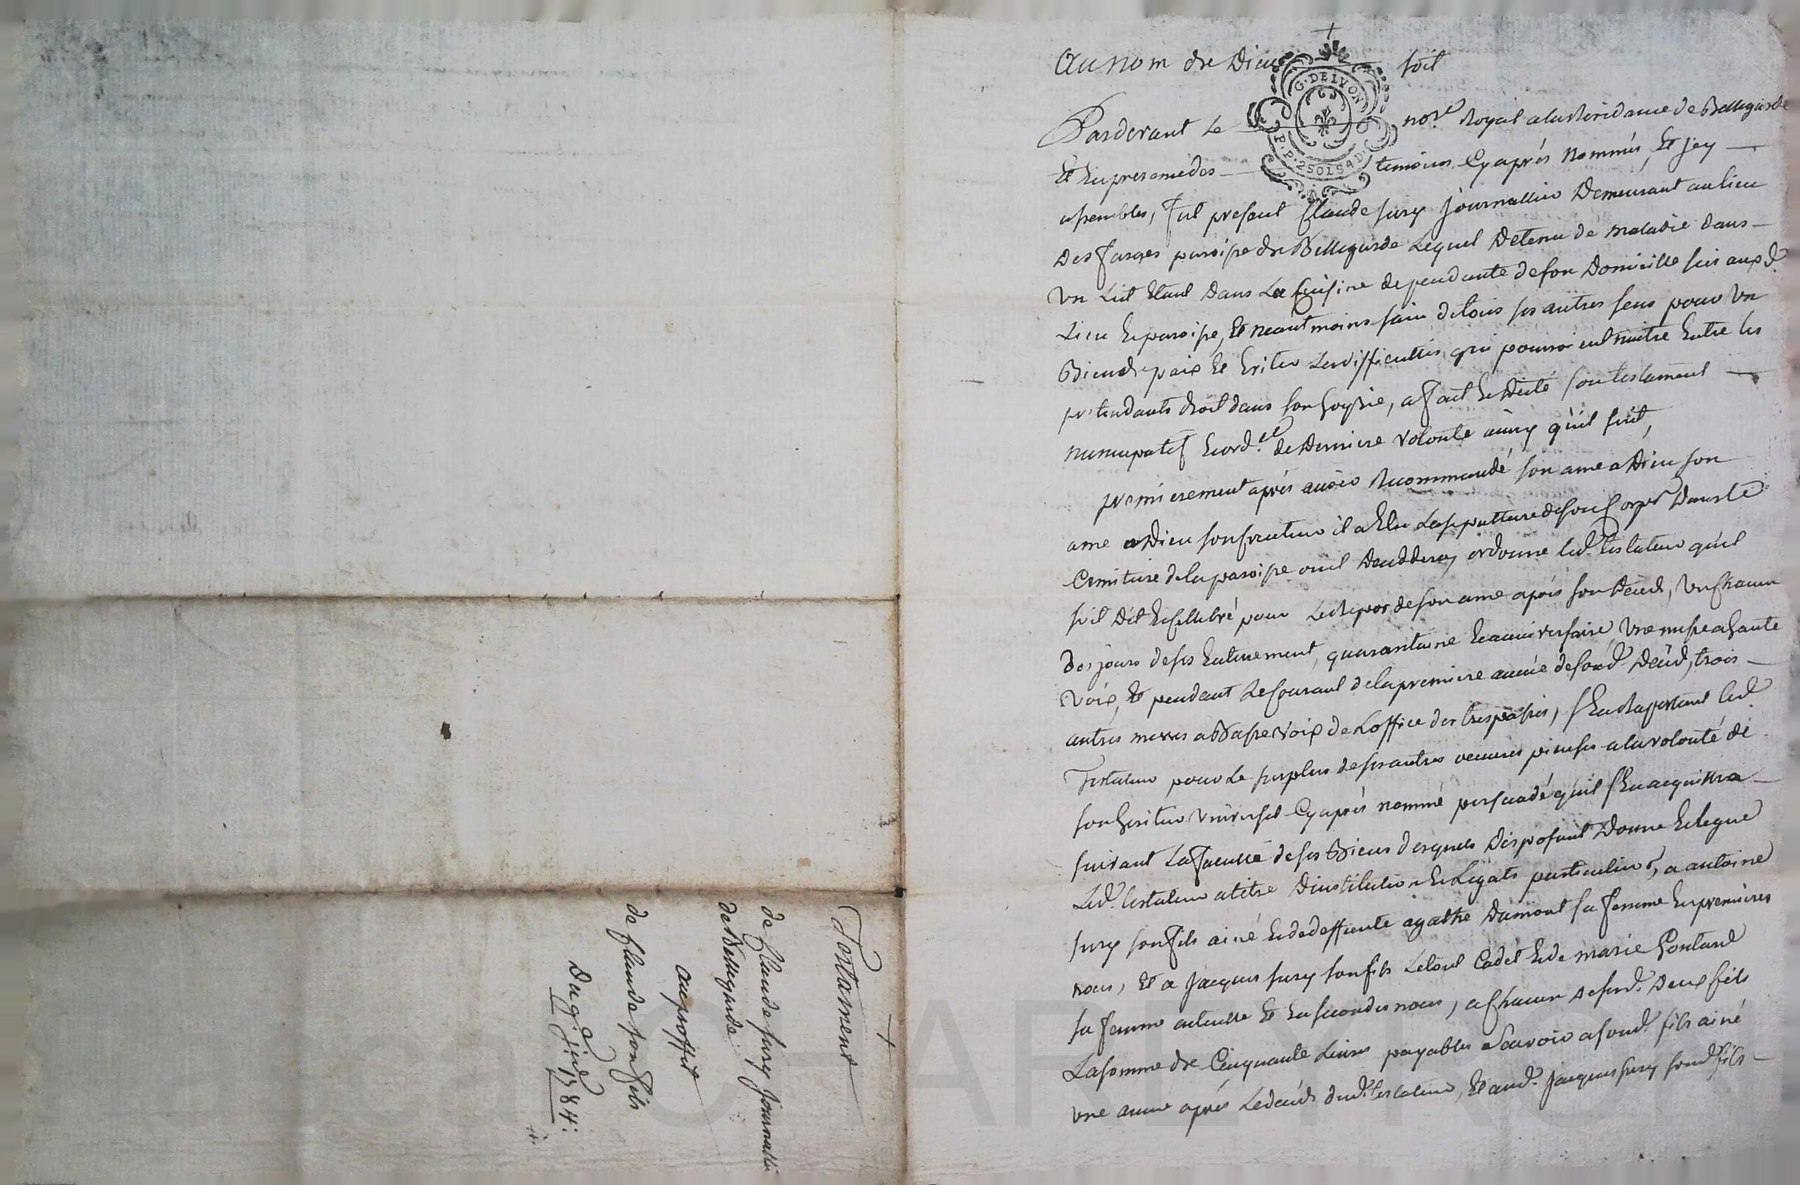 Testament
de Claude Jury Journallier
de Bellegarde
au proffit
de Claude son fils
Du 9 1784
Au nom de Dieu soit
G. DE LYON
P.P. 2 SOLS 4 D.
Pardevant Le nore. Royal a la Residance de Bellegarde
Et En presence des temoins Cy après Nommés, Et
assembles, fut present Claude Jury Journallier Demeurant au lieu
Des farges paroisse de Bellegarde Lequel Detenu de maladie dans
un Lit Etant Dans La Cuisine dependante de son Domicille sis auxd.
Lieu Et paroisse, Et neantmoins sain de tous ses autres sens pour un
Bien de paix Et Eviter Les difficultés qui pourroient naitre Entre les
pretendants droit dans son hoyrie, a fait Et Dicté son testament
nuncupatif Et ord.ce de Derniere volonté ainsy qu'il suit,
premierement après avoir Recommandé son ame a Dieu son
ame a Dieu son Createur il a Elu La sepulture de son Corps Dans le
Cimitiere de la paroisse ou il Decedera, ordonne led. testateur qu'il
soit Dit Et Cellebré pour Le Repos de son ame après son Décéd, un Chacun
des jours de ses Enterrement, quarantaine Et anniversaire, une messe a haute
voix, Et pendant Le Courant de la premiere année de sond. Décéd, trois
autres messes a Basse voix de L'office des trespassés, s'En Raportant led.
Testateur pour Le surplus de ses autres oeuvres pieuses a la volonté de
son heritier Universel Cy après nommé persuadé qu'il s'En acquittra
suivant La Faculté de ses Biens desquels Disposant Donne Et legue
Led. testateur a titre D'institution Et Legats particuliers, a antoine
Jury son fils ainé Et de deffunte agathe Dumont sa femme En premieres
noces, Et a Jacques Jury son fils Le tout Cadet Et de marie Pontard
sa femme actuelle Et En secondes noces, a Chacun de sesd. Deux fils
La somme de Cinquante Livres payables Sçavoir a sond. fils ainé
une année après Le décéd dud. testateur, Et aud. Jacques Jury sond. fils